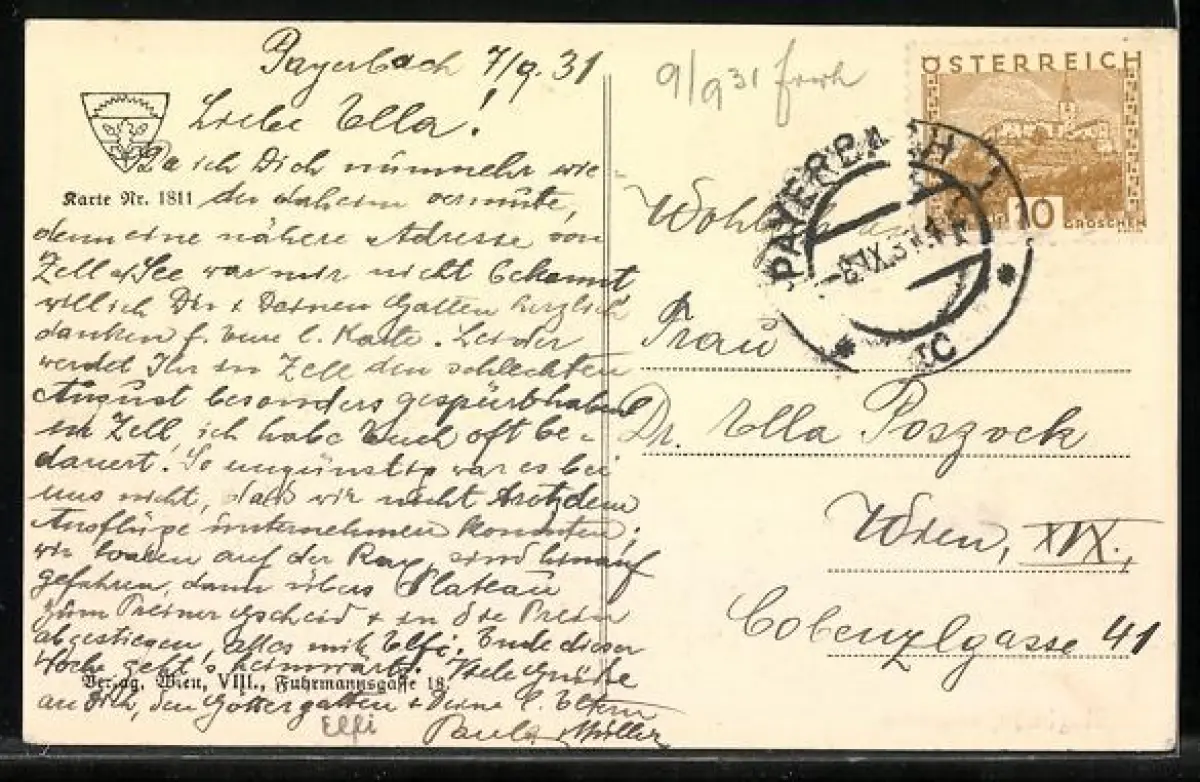 Payerbach 7/9.31
Liebe Ella!
Da ich Dich nunmehr wie-
der daheim vermute,
denn eine nähere Adresse von
Zell a/See war mir nicht bekannt
will ich Dir & Deinen Gatten herzlich
danken f. Eure l. Karte. Leider
werdet Ihr in Zell den schlechten
August besonders gespürt haben
in Zell, ich habe Euch oft be-
dauert! So ungünstig war es bei
uns nicht, daß wir nicht trotzdem
Ausflüge unternehmen konnten;
wir waren auf der Rax, sind hinauf
gefahren, dann übers Plateau
zum Preiner Gscheid & in die Prein
abgestiegen, alles mit Elfi. Ende dieser
Woche geht's heimwärts. Viele Grüße
an Dich, den Göttergatten & Deine l. Eltern
Paula Müller
Elfi
Karte Nr. 1811
Verlag. Wien, VIII., Fuhrmannsgasse 18.
9/9 31 früh
ÖSTERREICH
10
GROSCHEN
PAYERBACH 1
8.IX.31
*
*
Frau
Dr. Ella Poszvek
Wien, XIX.,
Cobenzlgasse 41